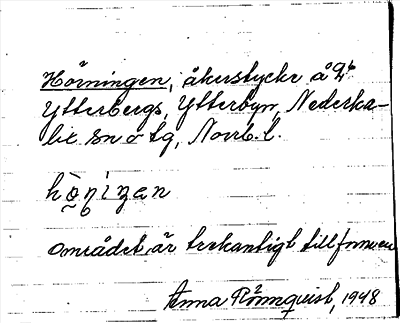 Hörningen, åkerstycke å 2⁶
Ytterbergs, Ytterbyn, Nederka-
lix sn o tg, Norrb. l.
hö̀ɳiŋən
Området är trekantigt till formen
Anna Rönnquist, 1948